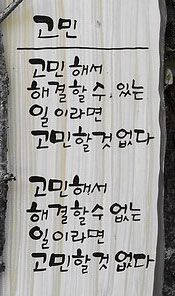 고민
고민해서
해결할 수 있는
일이라면
고민할 것 없다
고민해서
해결할 수 없는
일이라면
고민할 것 없다